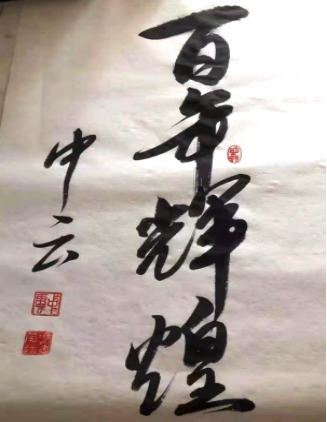 百年辉煌
中云